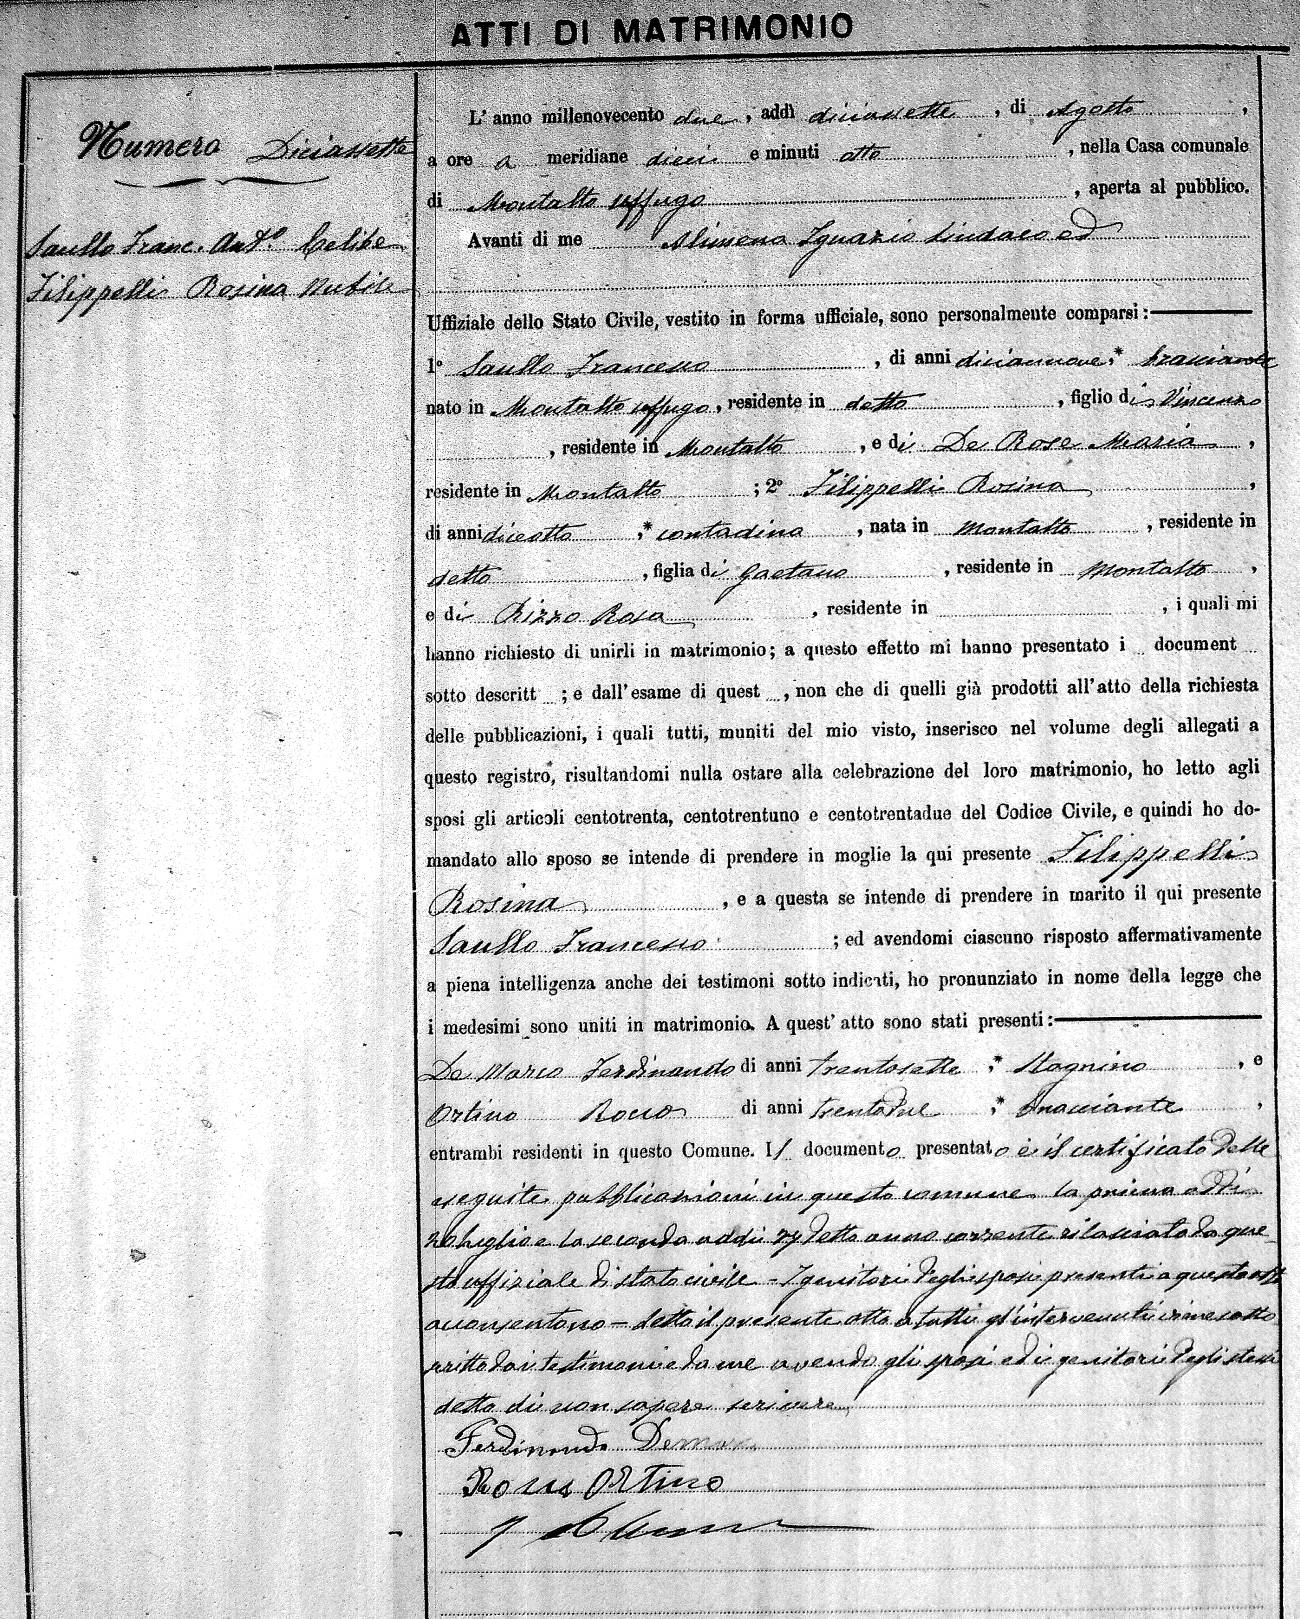 ATTI DI MATRIMONIO
Numero Diciassette
Saullo Franc. Ant.º Celibe
Filippelli Rosina Nubile
L' anno millenovecento due, addì diciassette, di Agosto,
a ore a meridiane dieci e minuti otto, nella Casa comunale
di Montalto Uffugo, aperta al pubblico.
Avanti di me Alimena Ignazio Sindaco ed
Uffiziale dello Stato Civile, vestito in forma ufficiale, sono personalmente comparsi:
1º Saullo Francesco, di anni diciannove, * bracciante
nato in Montalto Uffugo, residente in detto, figlio di Vincenzo
, residente in Montalto, e di De Rose Maria,
residente in Montalto; 2º Filippelli Rosina,
di anni diciotto, * contadina, nata in Montalto, residente in
detto, figlia di Gaetano, residente in Montalto,
e di Rizzo Rosa, residente in , i quali mi
hanno richiesto di unirli in matrimonio; a questo effetto mi hanno presentato i document
sotto descritt ; e dall'esame di quest , non che di quelli già prodotti all'atto della richiesta
delle pubblicazioni, i quali tutti, muniti del mio visto, inserisco nel volume degli allegati a
questo registro, risultandomi nulla ostare alla celebrazione del loro matrimonio, ho letto agli
sposi gli articoli centotrenta, centotrentuno e centotrentadue del Codice Civile, e quindi ho do-
mandato allo sposo se intende di prendere in moglie la qui presente Filippelli
Rosina, e a questa se intende di prendere in marito il qui presente
Saullo Francesco; ed avendomi ciascuno risposto affermativamente
a piena intelligenza anche dei testimoni sotto indicati, ho pronunziato in nome della legge che
i medesimi sono uniti in matrimonio. A quest' atto sono stati presenti:
De Marco Ferdinando di anni trentasette, * Stagnino, e
Ortino Rocco di anni trentadue, * bracciante,
entrambi residenti in questo Comune. Il documento presentato è il certificato delle
eseguite pubblicazioni in questo comune la prima addì
20 luglio e la seconda addì 27 detto anno corrente rilasciato da que-
sto uffiziale di stato civile - I genitori degli sposi presenti a questo atto
acconsentono - letto il presente atto a tutti gl'intervenuti viene sotto
scritto dai testimoni e da me avendo gli sposi ed i genitori degli stessi
detto di non sapere scrivere
Ferdinando Demarco
Rocco Ortino